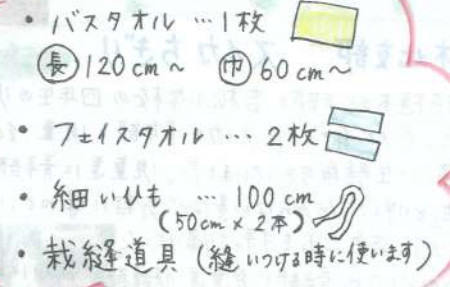 ・バスタオル …1枚
㊤長 120cm〜 巾 60cm〜
・フェイスタオル … 2枚
・細いひも … 100cm
(50cm×2本)
・裁縫道具 (縫いつける時に使います)